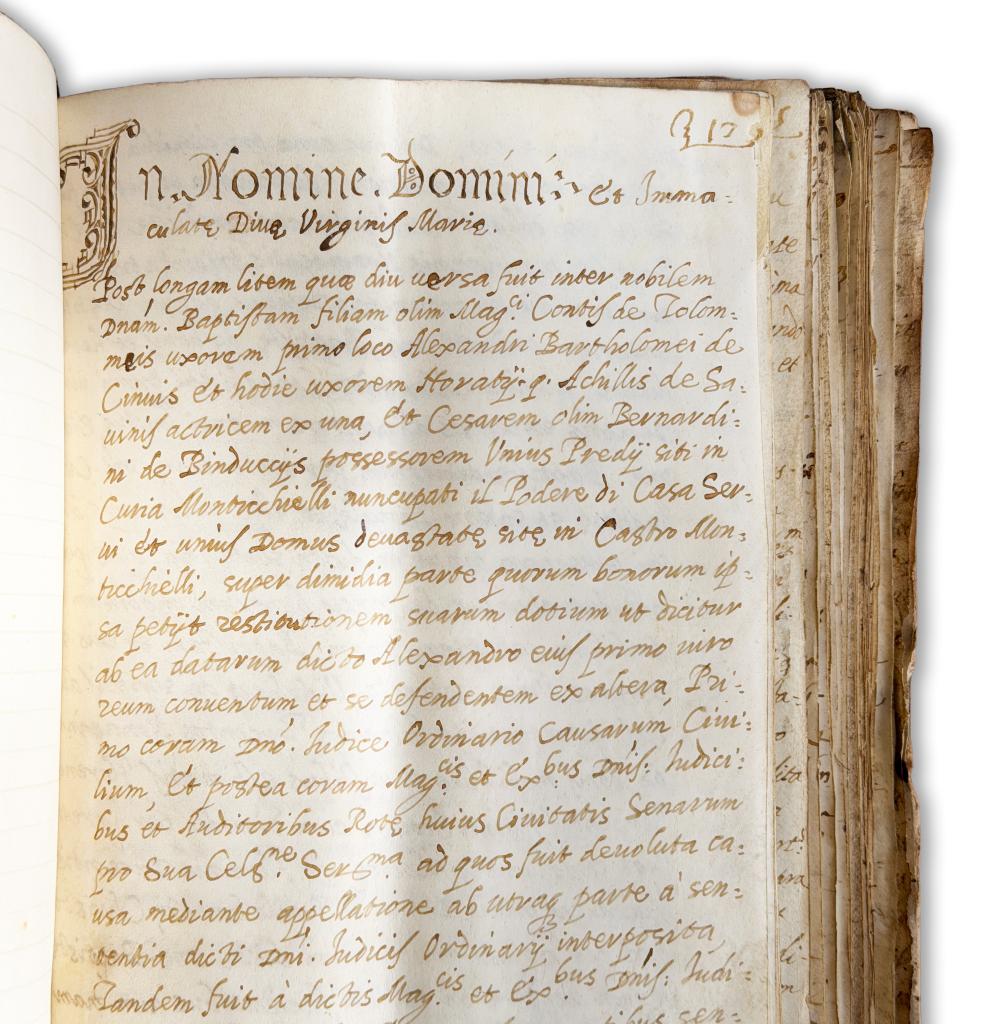 312
In Nomine. Domini: Et Imma:
culatę Divę Virginis Marię.
Post longam litem quæ diu versa fuit inter nobilem
Dnám. Baptistam filiam olim Mag.ci Contis de Tolom:
meis uxorem primo loco Alexandri Bartholomei de
Cinuis et hodie uxorem Horatÿ q. Achillis de Sa:
uinis actricem ex una, Et Cesarem olim Bernardi:
ni de Binduccÿs possessorem Unius Predÿ siti in
Curia Monticchielli nuncupati il Podere di Casa Ser:
ui et unius Domus deuastatę sitę in Castro Mon:
ticchielli, super dimidia parte quorum bonorum ip:
sa petÿt restitutionem suarum dotium ut dicitur
ab ea datarum dicto Alexandro eius primo uiro
reum conuentum et se defendentem ex altera, Pri:
mo coram Dnó. Iudice Ordinario Causarum Ciui:
lium, Et postea coram Mag.cis et Ex.bus Dnís: Iudici:
bus et Auditoribus Rotę huius Ciuitatis Senarum
pro Sua Cels.ne Ser.ma ad quos fuit deuoluta ca:
usa mediante appellatione ab utraq parte à sen:
tentia dicti Dní. Iudicis Ordinarÿ interposita,
Tandem fuit à dictis Mag.cis et Ex.bus Dnís: Iudi:
tibus sen: